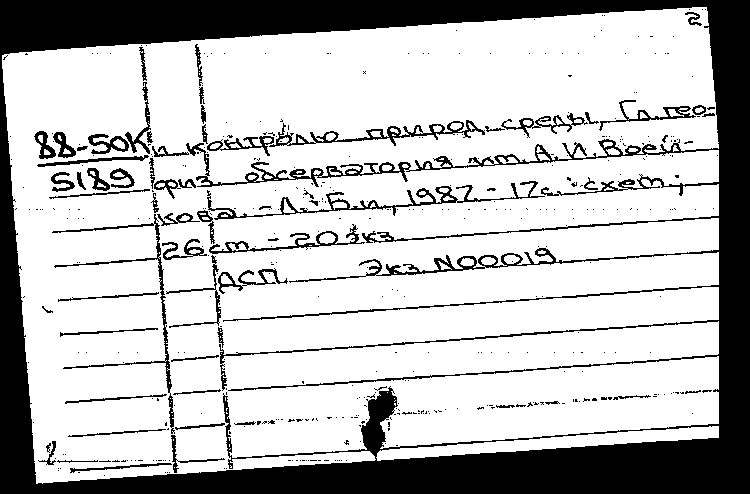 2.
88-50К и контролю природ. среды, Гл. гео-
5189 физ. обсерватория им. А.И. Воей-
кова. - Л.: Б.и., 1987. - 17с. : схем.;
26 ст. - 20 экз.
ДСП. Экз. N00019.